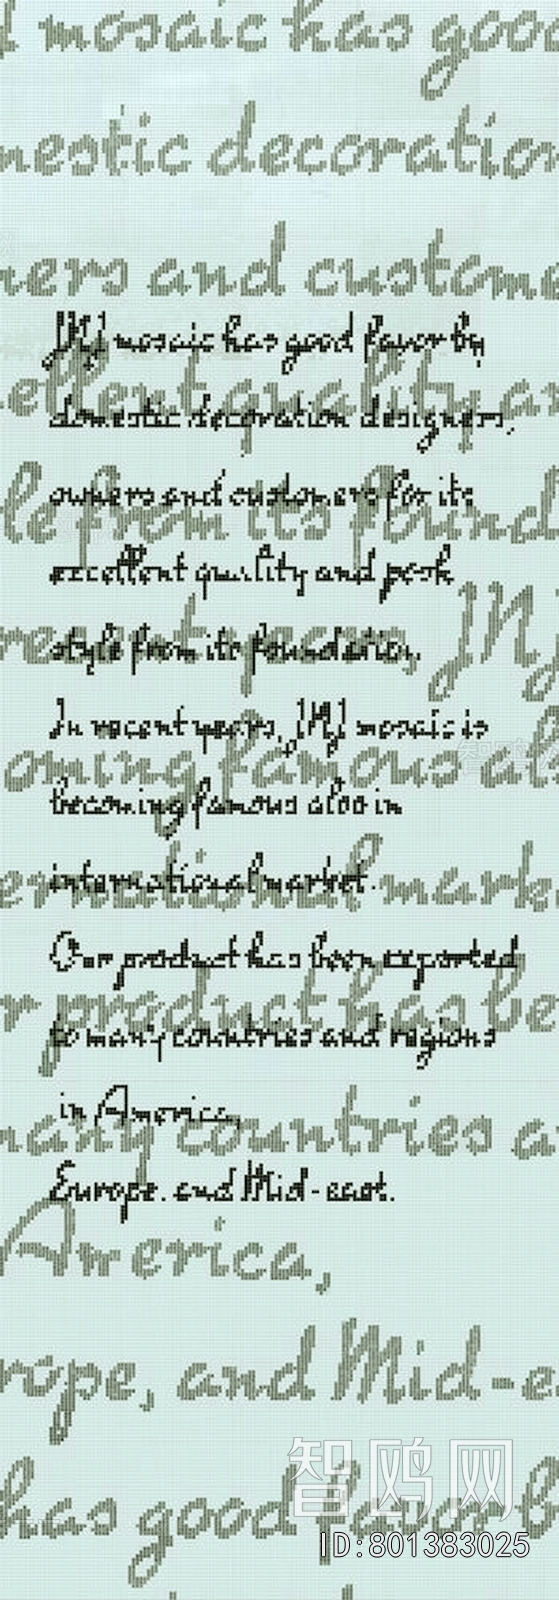 d mosaic has good
mestic decoration
ners and custome
JNJ mosaic has good favor by
ellent quality an
domestic decoration designers,
le from its found
owners and customers for its
excellent quality and posh
recent years, JNJ
style from its foundation,
In recent years, JNJ mosaic is
oming famous als
becoming famous also in
ernational marke
international market.
Our product has been exported
r product has be
to many countries and regions
in America,
many countries a
Europe. and Mid-east.
America,
rope, and Mid-e
has good favor b
智鸥网
ID:801383025